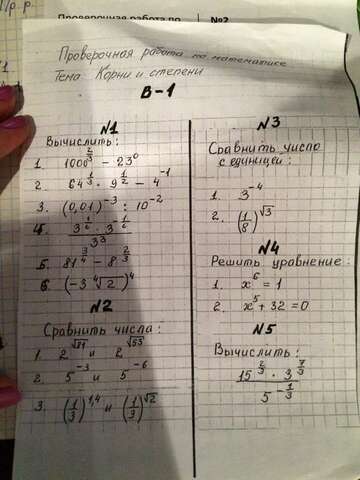 Пр. р.
Проверочная работа по
№2
Проверочная работа по математике
Тема Корни и степени
В-1
№1
Вычислить:
1. 1000^(2/3) - 23^0
2. 64^(1/3) · 9^(1/2) - 4^(-1)
3. (0,01)^(-3) : 10^(-2)
5. 81^(3/4) - 8^(2/3)
6. (-3 ∜2)^4
№2
Сравнить числа:
2. 5^(-3) и 5^(-6)
3. (1/3)^(1,4) и (1/3)^(√2)
№3
Сравнить число
с единицей:
1. 3^(-4)
2. (1/8)^(√3)
№4
Решить уравнение:
1. x^6 = 1
2. x^5 + 32 = 0
№5
Вычислить:
(15^(2/3) · 3^(7/3)) / 5^(-1/3)